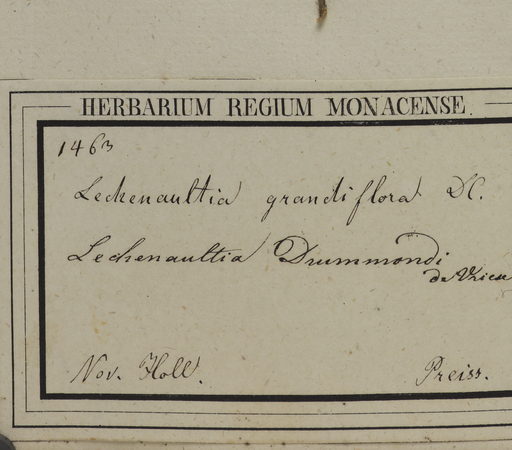 HERBARIUM REGIUM MONACENSE.
1463
Lechenaultia grandiflora DC.
Lechenaultia Drummondi
de Vriese
Nov. Holl.
Preiss.